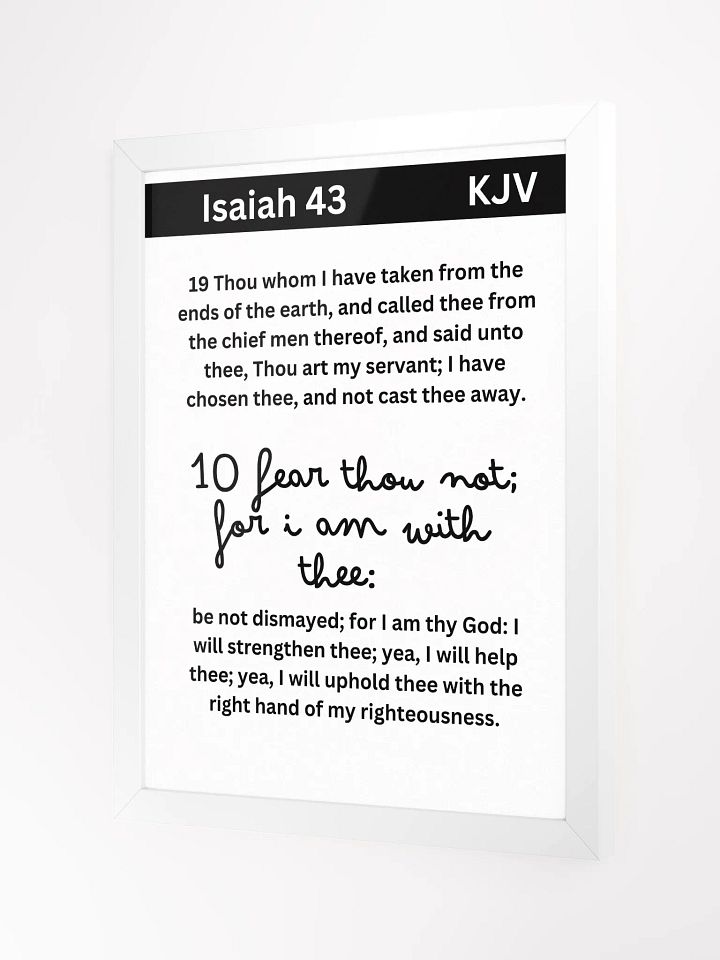 Isaiah 43 KJV
19 Thou whom I have taken from the
ends of the earth, and called thee from
the chief men thereof, and said unto
thee, Thou art my servant; I have
chosen thee, and not cast thee away.
10 fear thou not;
for i am with
thee:
be not dismayed; for I am thy God: I
will strengthen thee; yea, I will help
thee; yea, I will uphold thee with the
right hand of my righteousness.